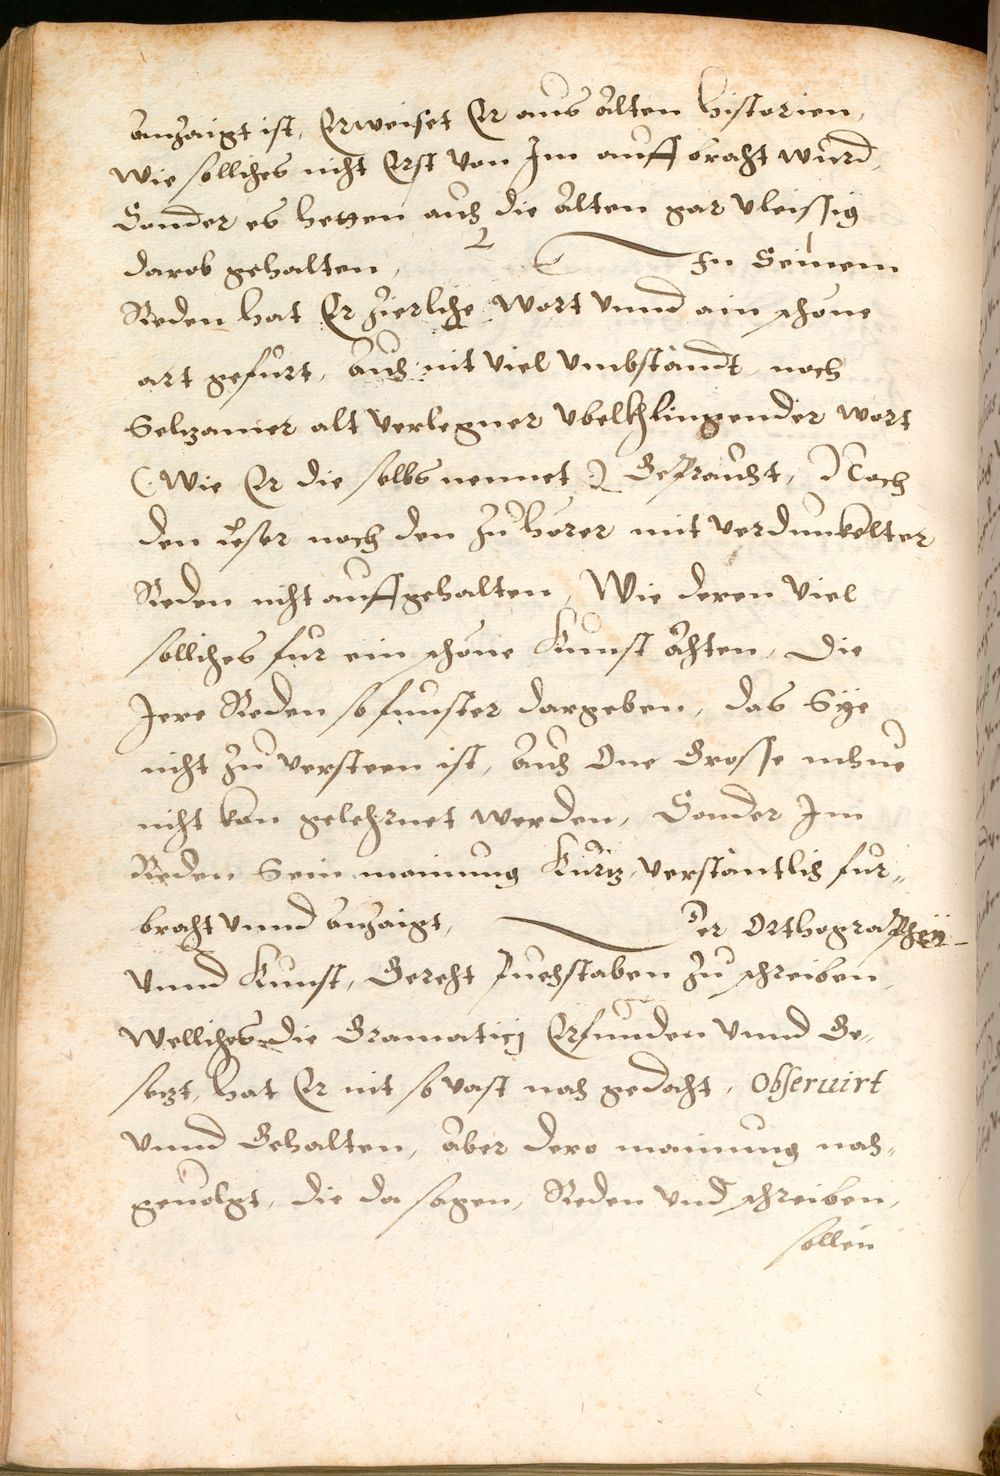 anzaigt ist, Erweiset Er aus alten historien,
wie sollches nicht Erst von Jm auff bracht wurd,
Sonder es hetten auch die alten gar vleissig
darob gehalten, In Seinem
Reden hat Er zierliche wort vnnd ain schone
art gefurt, auch nit viel vmbstandt noch
Seltzamer alt verlegner vbelkhlingender wort
(: wie Er die selbs nennet :) Gepraucht, Noch
den Leser noch den zuhorer mit verdunkelter
Reden nicht auffgehalten, Wie deren viel
sollches fur ein schone Kunst achten, Die
Jere Reden so finster dargeben, das Sye
nicht zu versteen ist, auch One Grosse muhue
nicht kan gelehrnet werden, Sonder Jm
Reden Sein mainung Kurtz, verstantlich fur„
bracht vnnd anzaigt, Der Orthographeÿ
vnnd Kunst, Gerecht Puechstaben zu schreiben,
Welliches die Gramaticj Erfunden vnnd Ge„
setzt, hat Er nit so vast nach gedacht, Obseruirt
vnnd Gehalten, aber dero mainung nach„
geuolgt, die da sagen, Reden vnd schreiben,
sollen